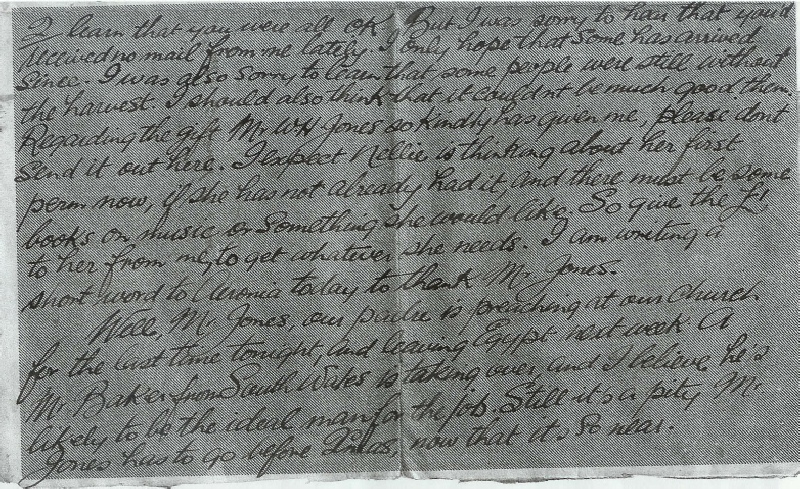 I learn that you were all OK. But I was sorry to hear that you'd
received no mail from me lately. I only hope that some has arrived
since. I was also sorry to learn that some people were still without
the harvest. I should also think that it couldn't be much good then.
Regarding the gift Mr W H Jones so kindly has given me, please don't
send it out here. I expect Nellie is thinking about her first
perm now, if she has not already had it, and there must be some
books or music or something she would like. So give the £1
to her from me, to get whatever she needs. I am writing a
short word to Uronia today to thank Mr. Jones.
Well, Mr. Jones, our padre is preaching at our Church
for the last time tonight, and leaving Egypt next week. A
Mr. Baker from South Wales is taking over, and I believe he's
likely to be the ideal man for the job. Still it's a pity Mr.
Jones has to go before Xmas, now that it's so near.